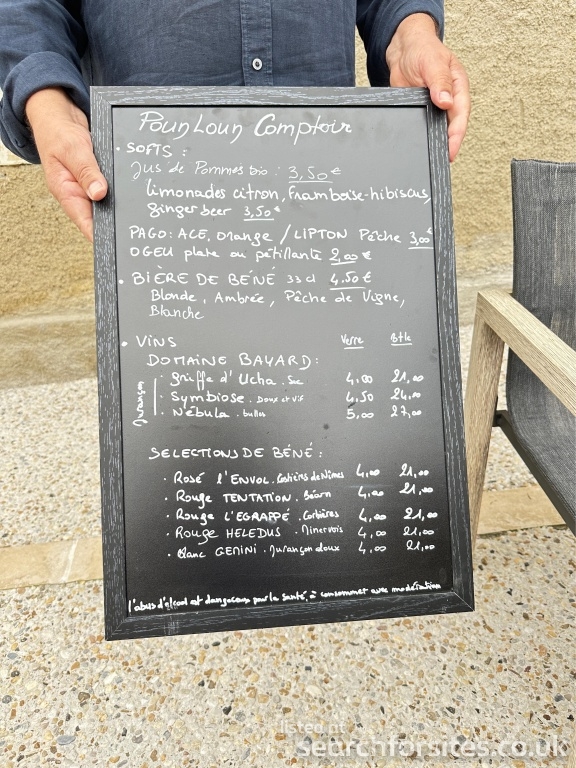 Poun Loun Comptoir
• SOFTS :
Jus de Pommes bio : 3,50 €
limonades citron, framboise-hibiscus,
ginger beer 3,50 €
PAGO: ACE, Orange / LIPTON Pêche 3,00
OGEU plate ou pétillante 2,00 €
• BIÈRE DE BÉNÉ 33 cl 4.50 €
Blonde, Ambrée, Pêche de Vigne,
Blanche
• VINS Verre Btle
DOMAINE BAYARD :
Jurançon
· Griffe d'Ucha . Sec 4,00 21,00
· Symbiose . Doux et Vif 4,50 24,00
· Nébula . bulles 5,00 27,00
SELECTIONS DE BÉNÉ :
· Rosé l'ENVOL . Costières de Nîmes 4,00 21,00
· Rouge TENTATION . Béarn 4,00 21,00
· Rouge L'EGRAPPÉ . Corbières 4,00 21,00
· Rouge HELEDUS . Minervois 4,00 21,00
· Blanc GEMINI . Jurançon doux 4,00 21,00
l'abus d'alcool est dangereux pour la santé, à consommer avec modération
listed at
searchforsites.co.uk